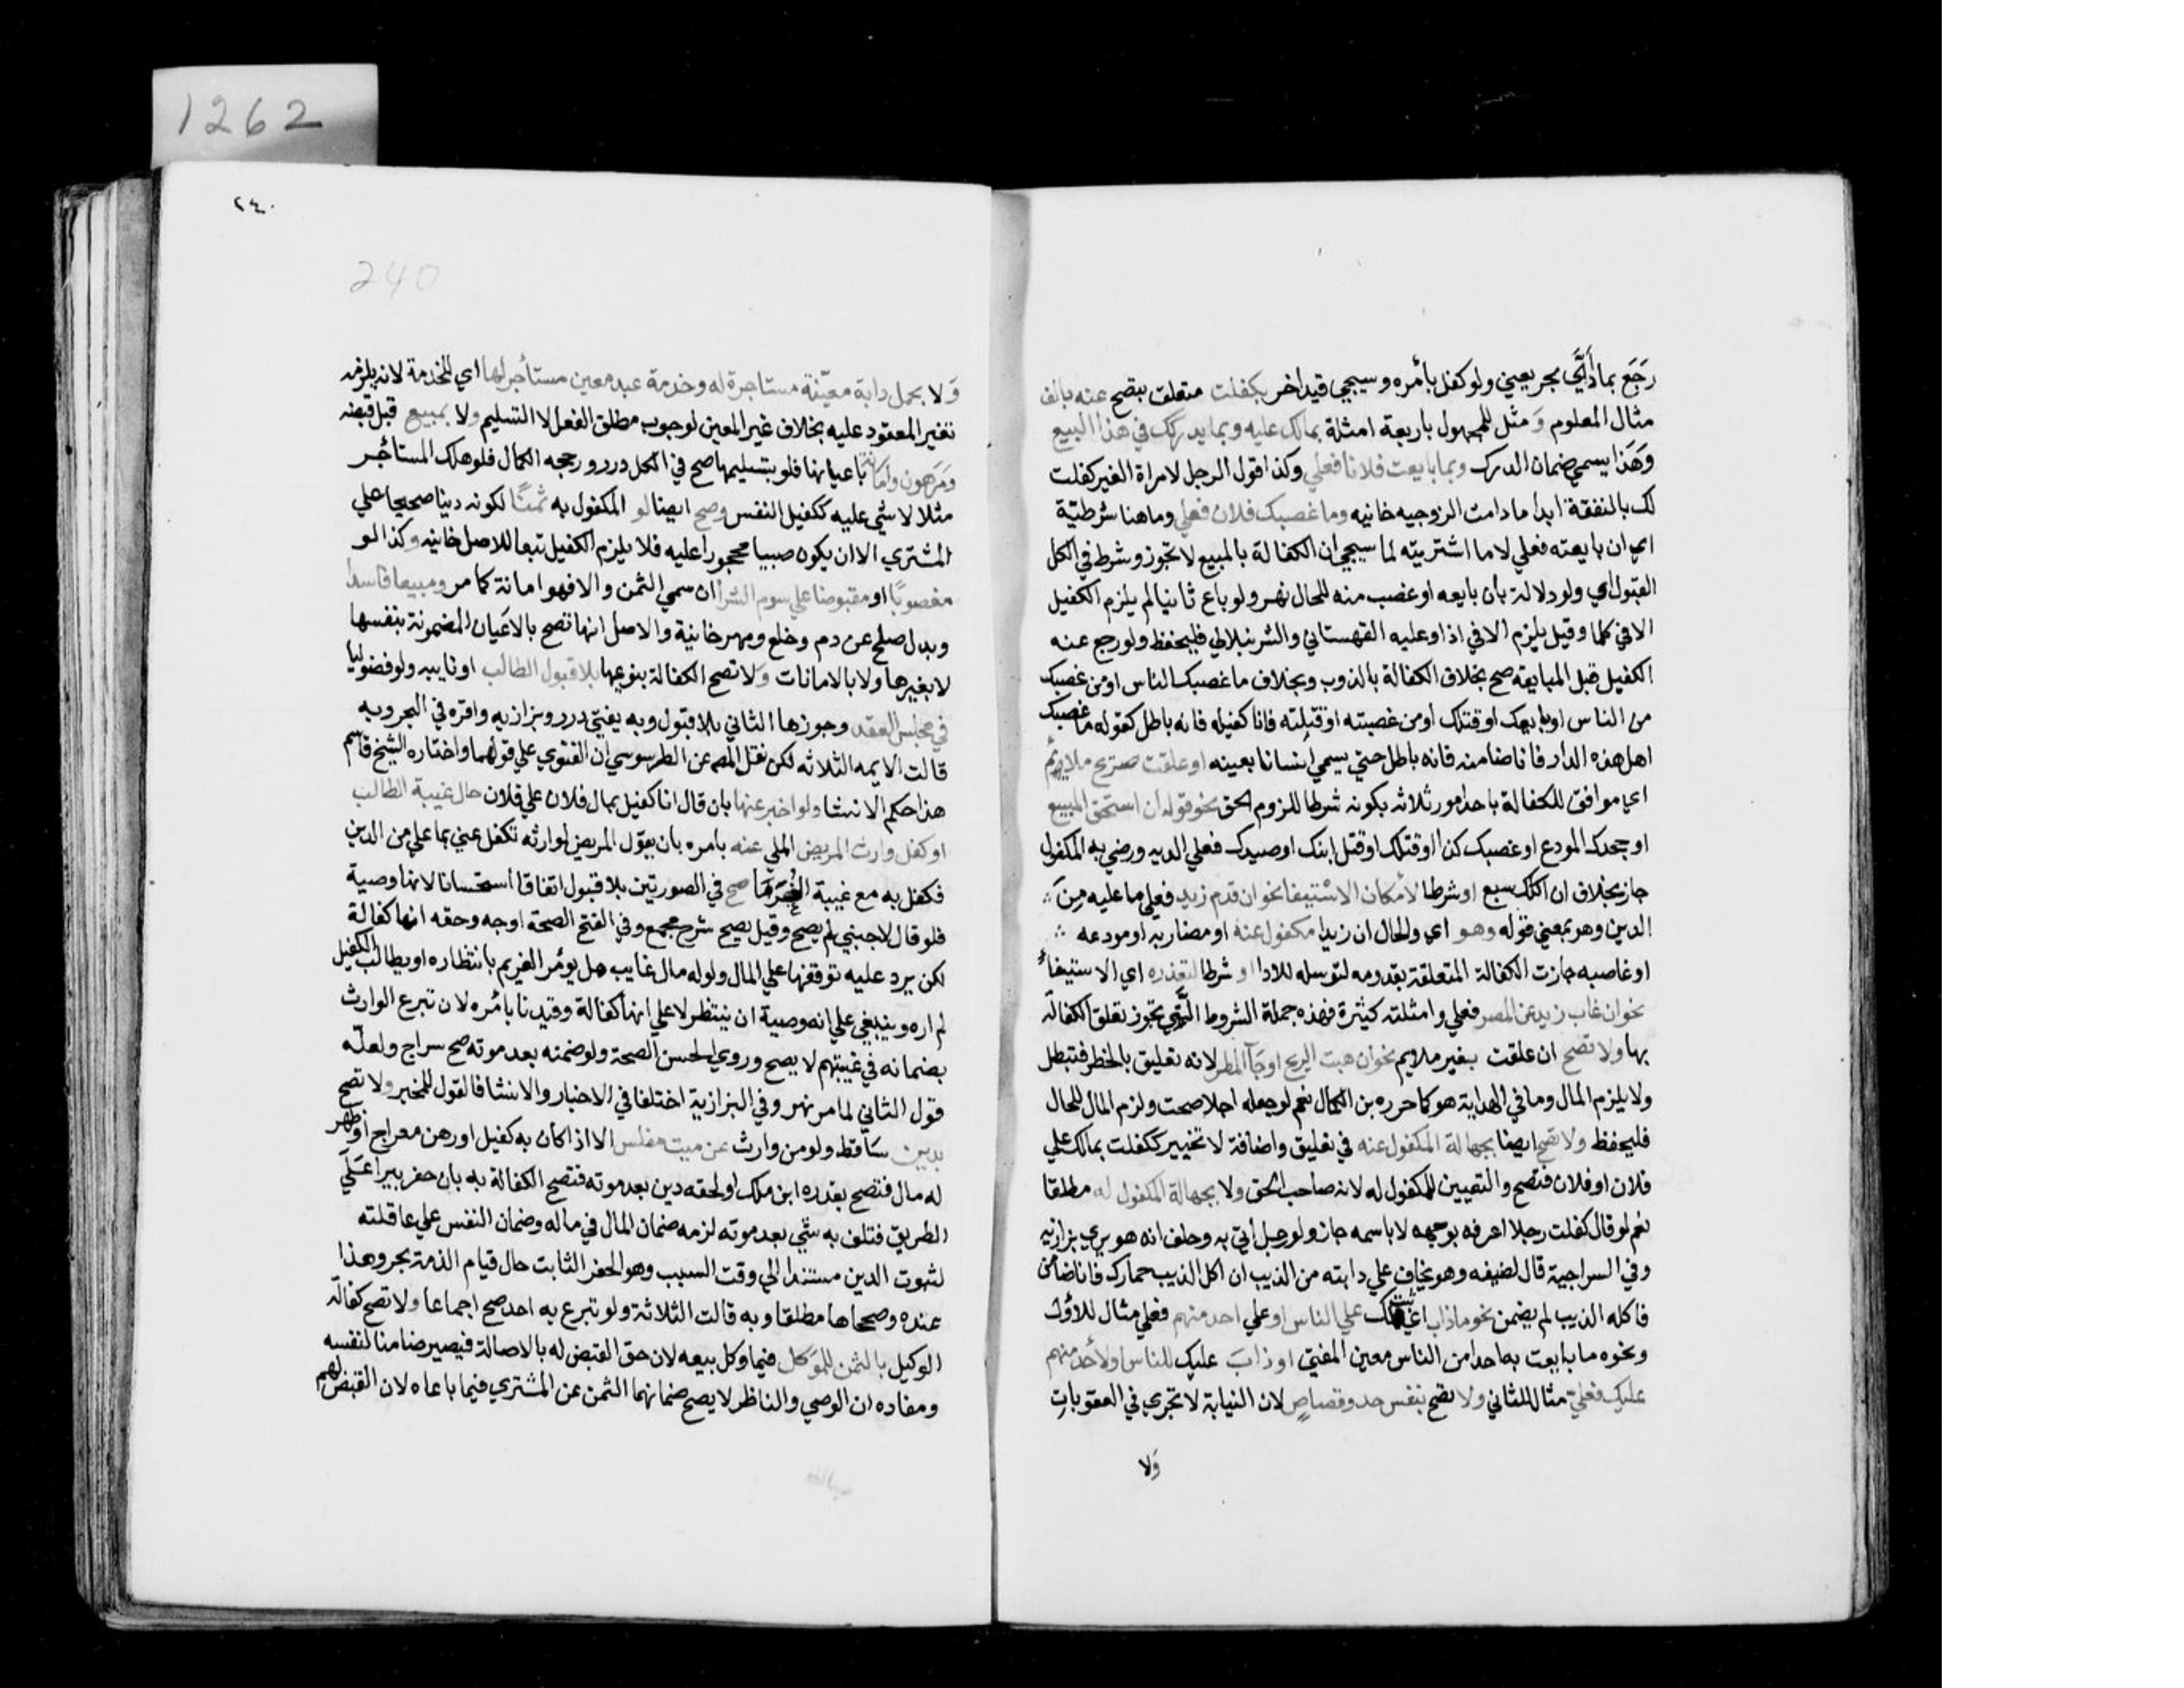 رَجَع بما أدَّي بحر يعني ولو كفل بأمره وسيجي قيد اخر بكفلت متعلق بتصح عنه بالف
مثال المعلوم وَمثل للمجهول باربعة امثلة بمالك عليه وبما يدركك في هذا البيع
وَهَذا يسمي ضمان الدرك وبما بايعت فلانا فعلي وكذا قول الرجل لامراة الغير كفلت
لك بالنفقة ابدا ما دامت الزوجيه خانيه وما غصبك فلان فعلي وما هنا شرطيّة
اي ان بايعته فعلي لا ما اشتريته لما سيجي ان الكفالة بالمبيع لا تجوز وشرط في الكل
القبول اي ولو دلالة بأن بايعه او غصب منه للحال نهر ولو باع ثانيا لم يلزم الكفيل
الا في كلما وقيل يلزم الا في اذا وعليه القهستاني والشرنبلالي فليحفظ ولو رجع عنه
الكفيل قبل المبايعة صح بخلاف الكفالة بالذوب وبخلاف ما غصبك الناس او من غصبك
من الناس او بايعك او قتلك او من غصبته او قتلته فانا كفيله فانه باطل كقوله ما غصبك
اهل هذه الدار فانا ضامنه فانه باطل حتي يسمي انسانا بعينه او علقت صريح ملايم
اي موافق للكفالة باحد امور ثلاثه بكونه شرطا للزوم الحق نحو قوله ان استحق المبيع
او جحدك المودع او غصبك كذا او قتلك او قتل ابنك او صيدك فعلي الديه ورضي به المكفول
جاز بخلاف ان اكلك سبع او شرطا لأمكان الاستيفا نحو ان قدم زيد فعلي ما عليه مِنَ
الدين وهو بمعني قوله وهو اي والحال ان زيدا مكفول عنه او مضاربه او مودعه
او غاصبه جازت الكفالة المتعلقة بقدومه لتوسله للادا او شرطا لتعذره اي الاستيفاء
نحو ان غاب زيد عن المصر فعلي وامثلته كثيرة فهذه جملة الشروط الَّتي تجوز تعلق الكفالة
بها ولا تصح ان علقت بغير ملايم نحو ان هبت الريح او جآ المطر لانه تعليق بالخطر فتبطل
ولا يلزم المال وما في الهداية هو كما حرره بن الكمال نعم لو جعله اجلا صحت ولزم المال للحال
فليحفظ ولا تصح ايضا بجهالة المكفول عنه في تعليق واضافة لا تخيير ككفلت بمالك علي
فلان او فلان فتصح والتعيين للمكفول له لانه صاحب الحق ولا بجهالة المكفول له مطلقا
نعم لو قال كفلت رجلا اعرفه بوجهه لا باسمه جاز ولو رجل أتي به وحلف انه هو بري بزازيه
وفي السراجية قال لضيفه وهو يخاف علي دابته من الذيب ان اكل الذيب حمارك فانا ضامن
فاكله الذيب لم يضمن نحو ما ذاب اي ثبت لك علي الناس او علي احد منهم فعلي مثال للأول
ونحوه ما بايعت به احدا من الناس معين المفتي او ذابَ عليك للناس او لأحد منهم
عليك فعليّ مثال للثاني ولا تصح بنفس حد وقصاصٍ لان النيابة لا تجري في العقوبات
وَلا
1262
٢٤٠
240
وَلا بحمل دابة معيّنة مستاجرة له وخدمة عبد معين مستأجر لها اي للخدمة لانه يلزمه
تغير المعقود عليه بخلاف غير المعين لوجوب مطلق الفعل لا التسليم ولا بمبيع قبل قبضه
وَمَرهون وامانة باعيانها فلو بتسليمها صح في الكل درر ورجحه الكمال فلو هلك المستأجر
مثلا لا شي عليه ككفيل النفس وصح ايضا لو المكفول به ثمنًا لكونه دينا صحيحا علي
المشتري الا ان يكون صبيا محجورا عليه فلا يلزم الكفيل تبعا للاصل خانيه وكذا لو
مغصوبًا او مقبوضا علي سوم الشرا ان سمي الثمن والا فهو امانة كما مر ومبيعا فاسدا
وبدل صلح عن دم وخلع ومهر خانية والاصل انها تصح بالاعيان المضمونة بنفسها
لا بغيرها ولا بالامانات وَلا تصح الكفالة بنوعيها بلا قبول الطالب او نايبه ولو فضوليا
في مجلس العقد وجوزها الثاني بلا قبول وبه يفتي درر وبزازيه واقره في البحر وبه
قالت الايمه الثلاثه لكن نقل المص عن الطرسوسي ان الفتوي علي قولهما واختاره الشيخ قاسم
هذا حكم الانشا ولو اخبر عنها بان قال انا كفيل بمال فلان علي فلان حال غيبة الطالب
او كفل وارث المريض الملي عنه بامره بان يقول المريض لوارثه تكفل عني بما علي من الدين
فكفل به مع غيبة الغُرَمَا صح في الصورتين بلا قبول اتفاقا استحسانا لانها وصية
فلو قال لاجنبي لم يصح وقيل يصح شرح مجمع وفي الفتح الصحة اوجه وحققه انها كفالة
لكن يرد عليه توقفها علي المال ولو له مال غايب هل يؤمر الغريم بانتظاره او يطالب الكفيل
لم اره وينبغي علي انه وصية ان ينتظر لا علي انها كفالة وقيدنا بأمره لان تبرع الوارث
بضمانه في غيبتهم لا يصح وروي الحسن الصحة ولو ضمنه بعد موته صح سراج ولعله
قول الثاني لما مر نهر وفي البزازية اختلفا في الاخبار والانشا فالقول للمخبر ولا تصح
بدين سَاقط ولو من وارث عن ميت مفلس الا اذا كان به كفيل او رهن معراج او ظهر
له مال فتصح بقدره ابن ملك او لحقه دين بعد موته فتصح الكفالة به بان حفر بيرا عَلَي
الطريق فتلف به شي بعد موته لزمه ضمان المال في ماله وضمان النفس علي عاقلته
لثبوت الدين مستندا الي وقت السبب وهو الحفر الثابت حال قيام الذمة بحر وهذا
عنده وصححاها مطلقا وبه قالت الثلاثة ولو تبرع به احد صح اجماعا ولا تصح كفالة
الوكيل بالثمن للموَكل فيما وكل ببيعه لان حق القبض له بالاصالة فيصير ضامنا لنفسه
ومفاده ان الوصي والناظر لا يصح ضمانهما الثمن عن المشتري فيما باعاه لان القبض لهم